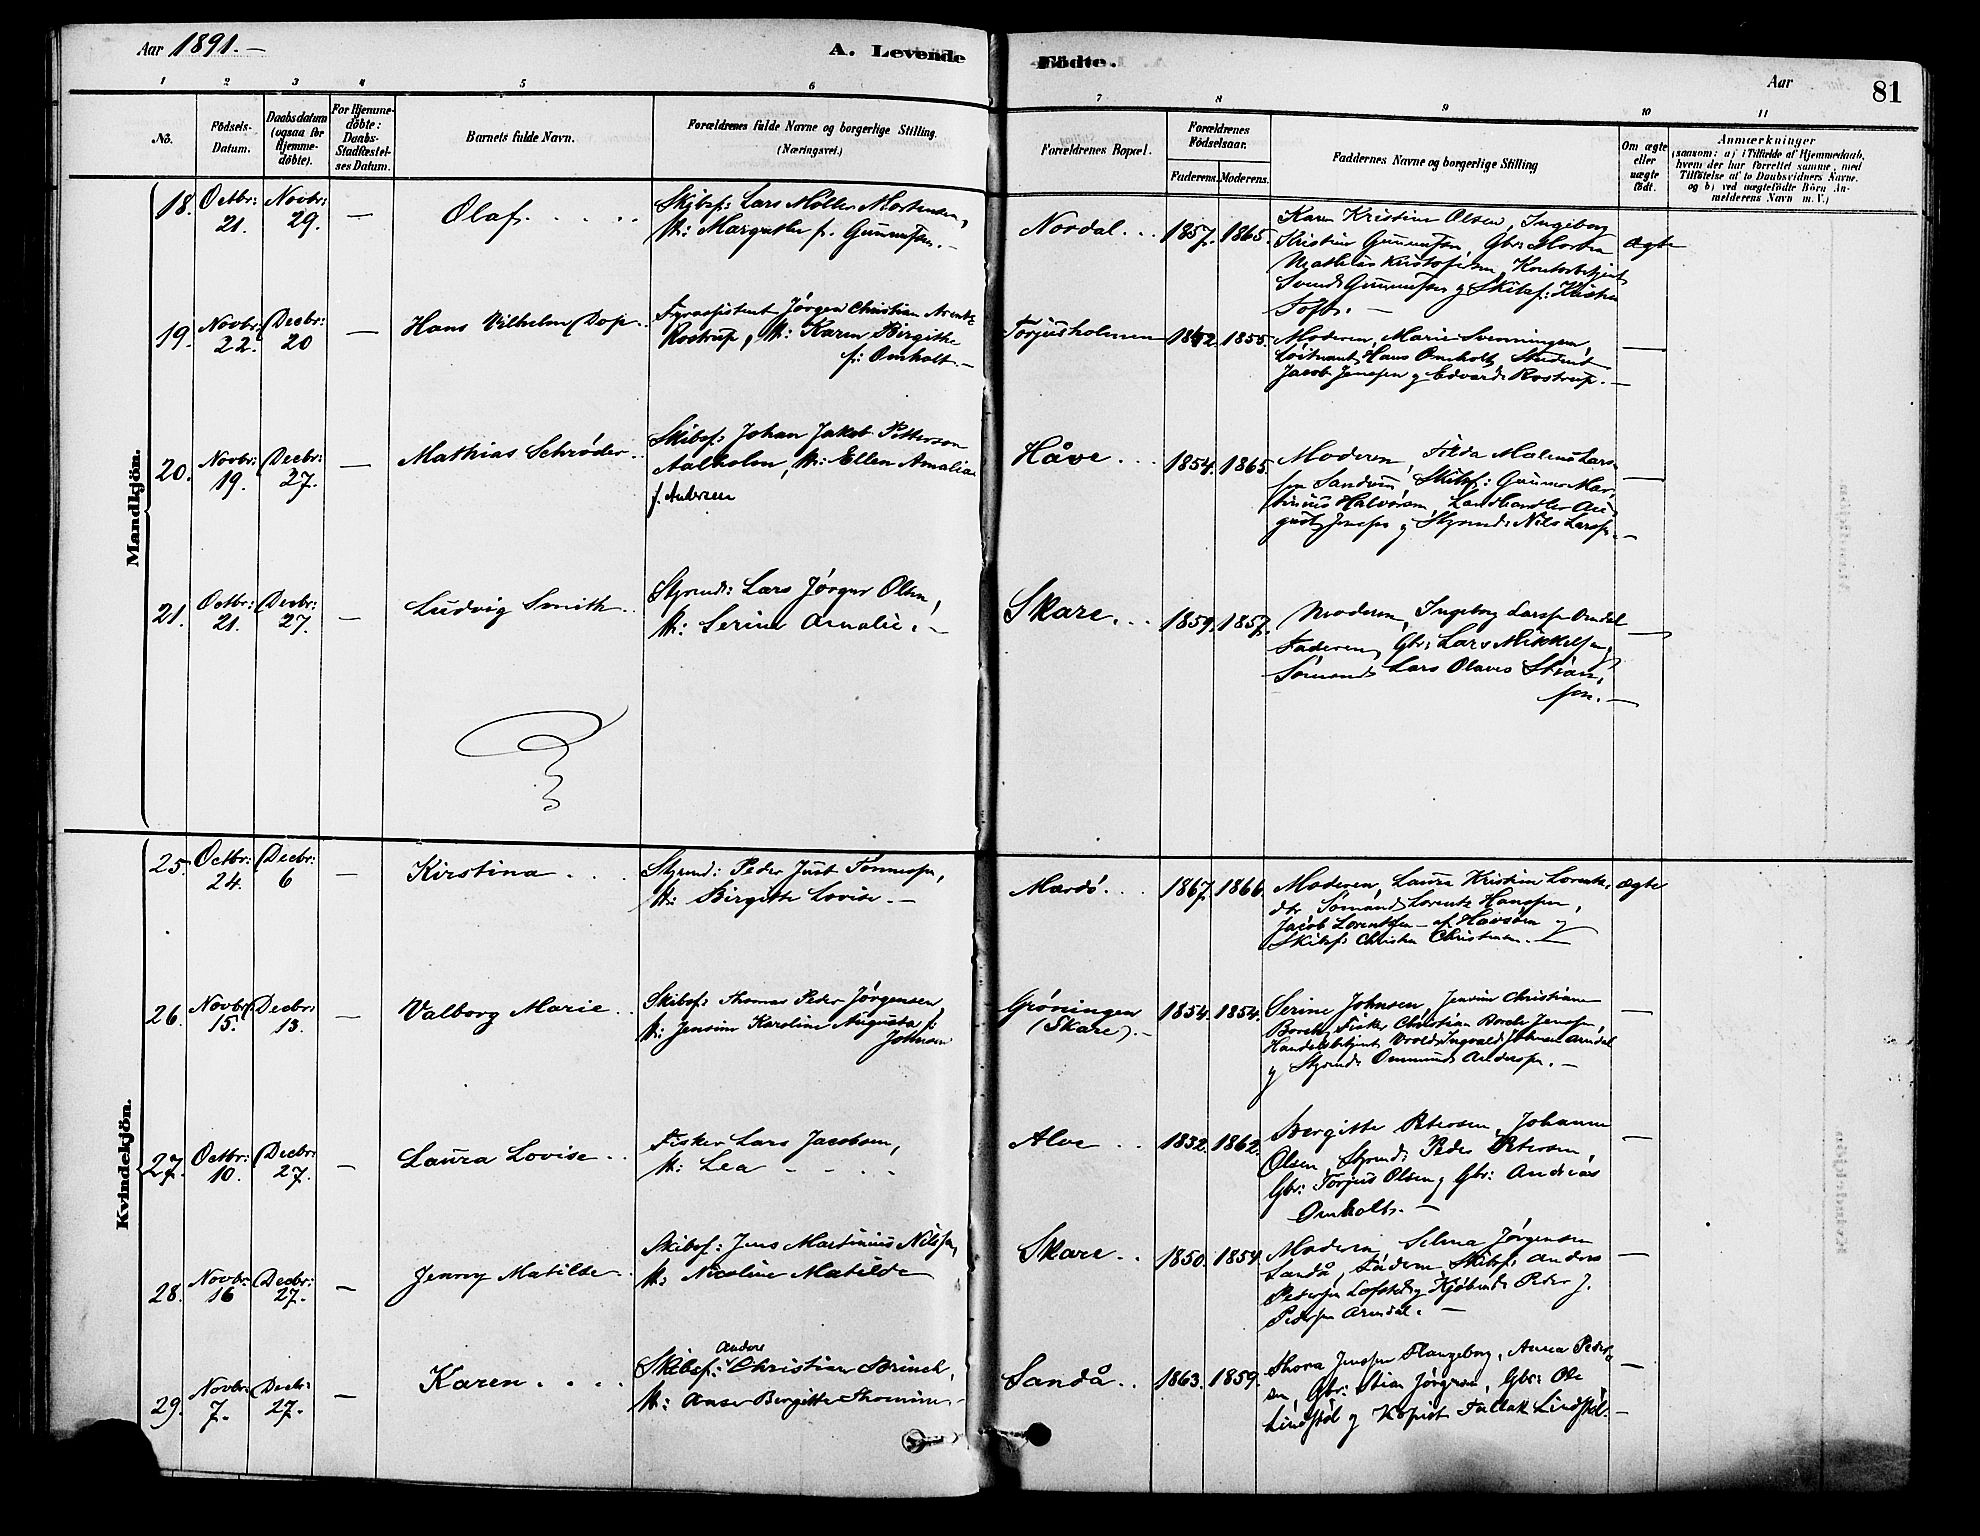 Aar 1891. —
A. Levende
Födte.
Aar
81
1 2 3 4 5 6 7 8 9 10 11
No.
Födsels-
Datum.
Daabsdatum
(ogsaa for
Hjemme-
döbte).
For Hjemme-
döbte:
Daabs-
Stadfæstel-
ses Datum.
Barnets fulde Navn.
Forældrenes fulde Navne og borgerlige Stilling.
(Næringsvei.)
Forældrenes Bopæl.
Forældrenes
Födselsaar.
Faderens. Moderens.
Faddernes Navne og borgerlige Stilling
Om ægte
eller
uægte
födt.
Anmærkninger
(saasom: a) i Tilfælde af Hjemmedaab,
hvem der har forrettet samme, med
Tilföielse af to Daabsvidners Navne.
og b) ved uægtefödte Börn An-
melderens Navn m. V.)
Mandkjön.
18. Octbr: 21. Novbr: 29. — Olaf
Skibsf: Lars Møller Mortensen,
H: Margrethe f. Gunnufsen. —
Nordal 1857. 1865.
Karen Kristine Olsen, Ingeborg
Kristine Gunnufsen, Gbr: Morten
Mathias Kristofersen, Kontorbetjent
Svend Gunnufsen og Skibsf: Kristen
Toft. —
ægte
19. Novbr: 22. Decbr: 20 — Hans Vilhelm Dop
Fyrassistent Jørgen Christian Arentz
Rostrup, H: Karen Birgithe
f: Omholt. —
Torjusholmen 1842. 1855.
Moderen, Marie Svenningsen,
Løitnant Hans Omholt, Student
Jacob Jenssen og Edvard Rostrup. —
—
20. Novbr: 19. Decbr: 27. — Mathias Schrøder
Skibsf: Johan Jakob Petterson
Aalholm, H: Ellen Amalia
f. Andersen
Håve 1854. 1865.
Moderen, Tilda Malene Lars-
sen Sandum, Skibsf: Gunnar Mar-
tinius Halvorsen, Landhandler Au-
gust Jenssen og Styrmd: Nils Larssen. —
—
21. Octbr: 21. Decbr: 27. — Ludvig Smith
Styrmd: Lars Jørgen Olsen,
H: Serine Amalie. —
Skare 1859. 1857.
Moderen, Ingeborg Larssen Arendal
Faderen, Gbr: Lars Mikkelsen,
Sømand Lars Olaves Stian-
sen. —
—
Kvindekjön.
25. Octbr: 24. Decbr: 6 — Kirstina
Styrmd: Peder Just Tønnesen,
H: Birgitte Lovise. —
Mærdø 1867. 1866
Moderen, Laura Kristine Lorentz-
dtr, Sømand Lorentz Hanssen,
Jacob Lorentssen — af Havsøen og
Skibsf: Christen Christensen. —
ægte
26. Novbr: 15. Decbr: 13. — Valborg Marie
Skibsf: Thomas Peder Jørgensen,
H: Jensine Karoline Augusta f:
Johnsen
Grøningen
(Skare). — 1854. 1854.
Serine Johnsen, Jensine Christiane
Borch, Fisker Christian Borch Jenssen,
Handelsbetjent Vrold Ingvald Johnsen Arendal
og Styrmd: Ommund Anderssen. —
—
27. Octbr: 10. Decbr: 27. — Laura Lovise
Fisker Lars Jacobsen,
H: Lea
Alve 1832. 1862.
Bergitte Petersen, Johanne
Olsen, Styrmd: Peder Petersen,
Gbr: Torjus Olsen og Gbr: Andreas
Omholt. —
—
28. Novbr: 16 Decbr: 27. — Jenny Matilde
Skibsf: Jens Martinius Nilsen,
H: Nicoline Matilde
Skare 1850. 1854.
Moderen, Selma Jørgensen
Sandå, Faderen, Skibsf: Anders
Pedersen Lofsted og Kjøbmd: Peder J.
Pedersen Arendal. —
—
29. Novbr: 7. Decbr: 27. — Karen
Anders
Skibsf: Christian Brinck,
H: Anne Bergitte Thomine —
Sandå 1863. 1859.
Thora Jenssen Flangeborg, Anna Peder-
sen, Gbr: Stian Jørgensen, Gbr: Ole
Lindstøl og Kopist Tallak Lindstøl. —
—